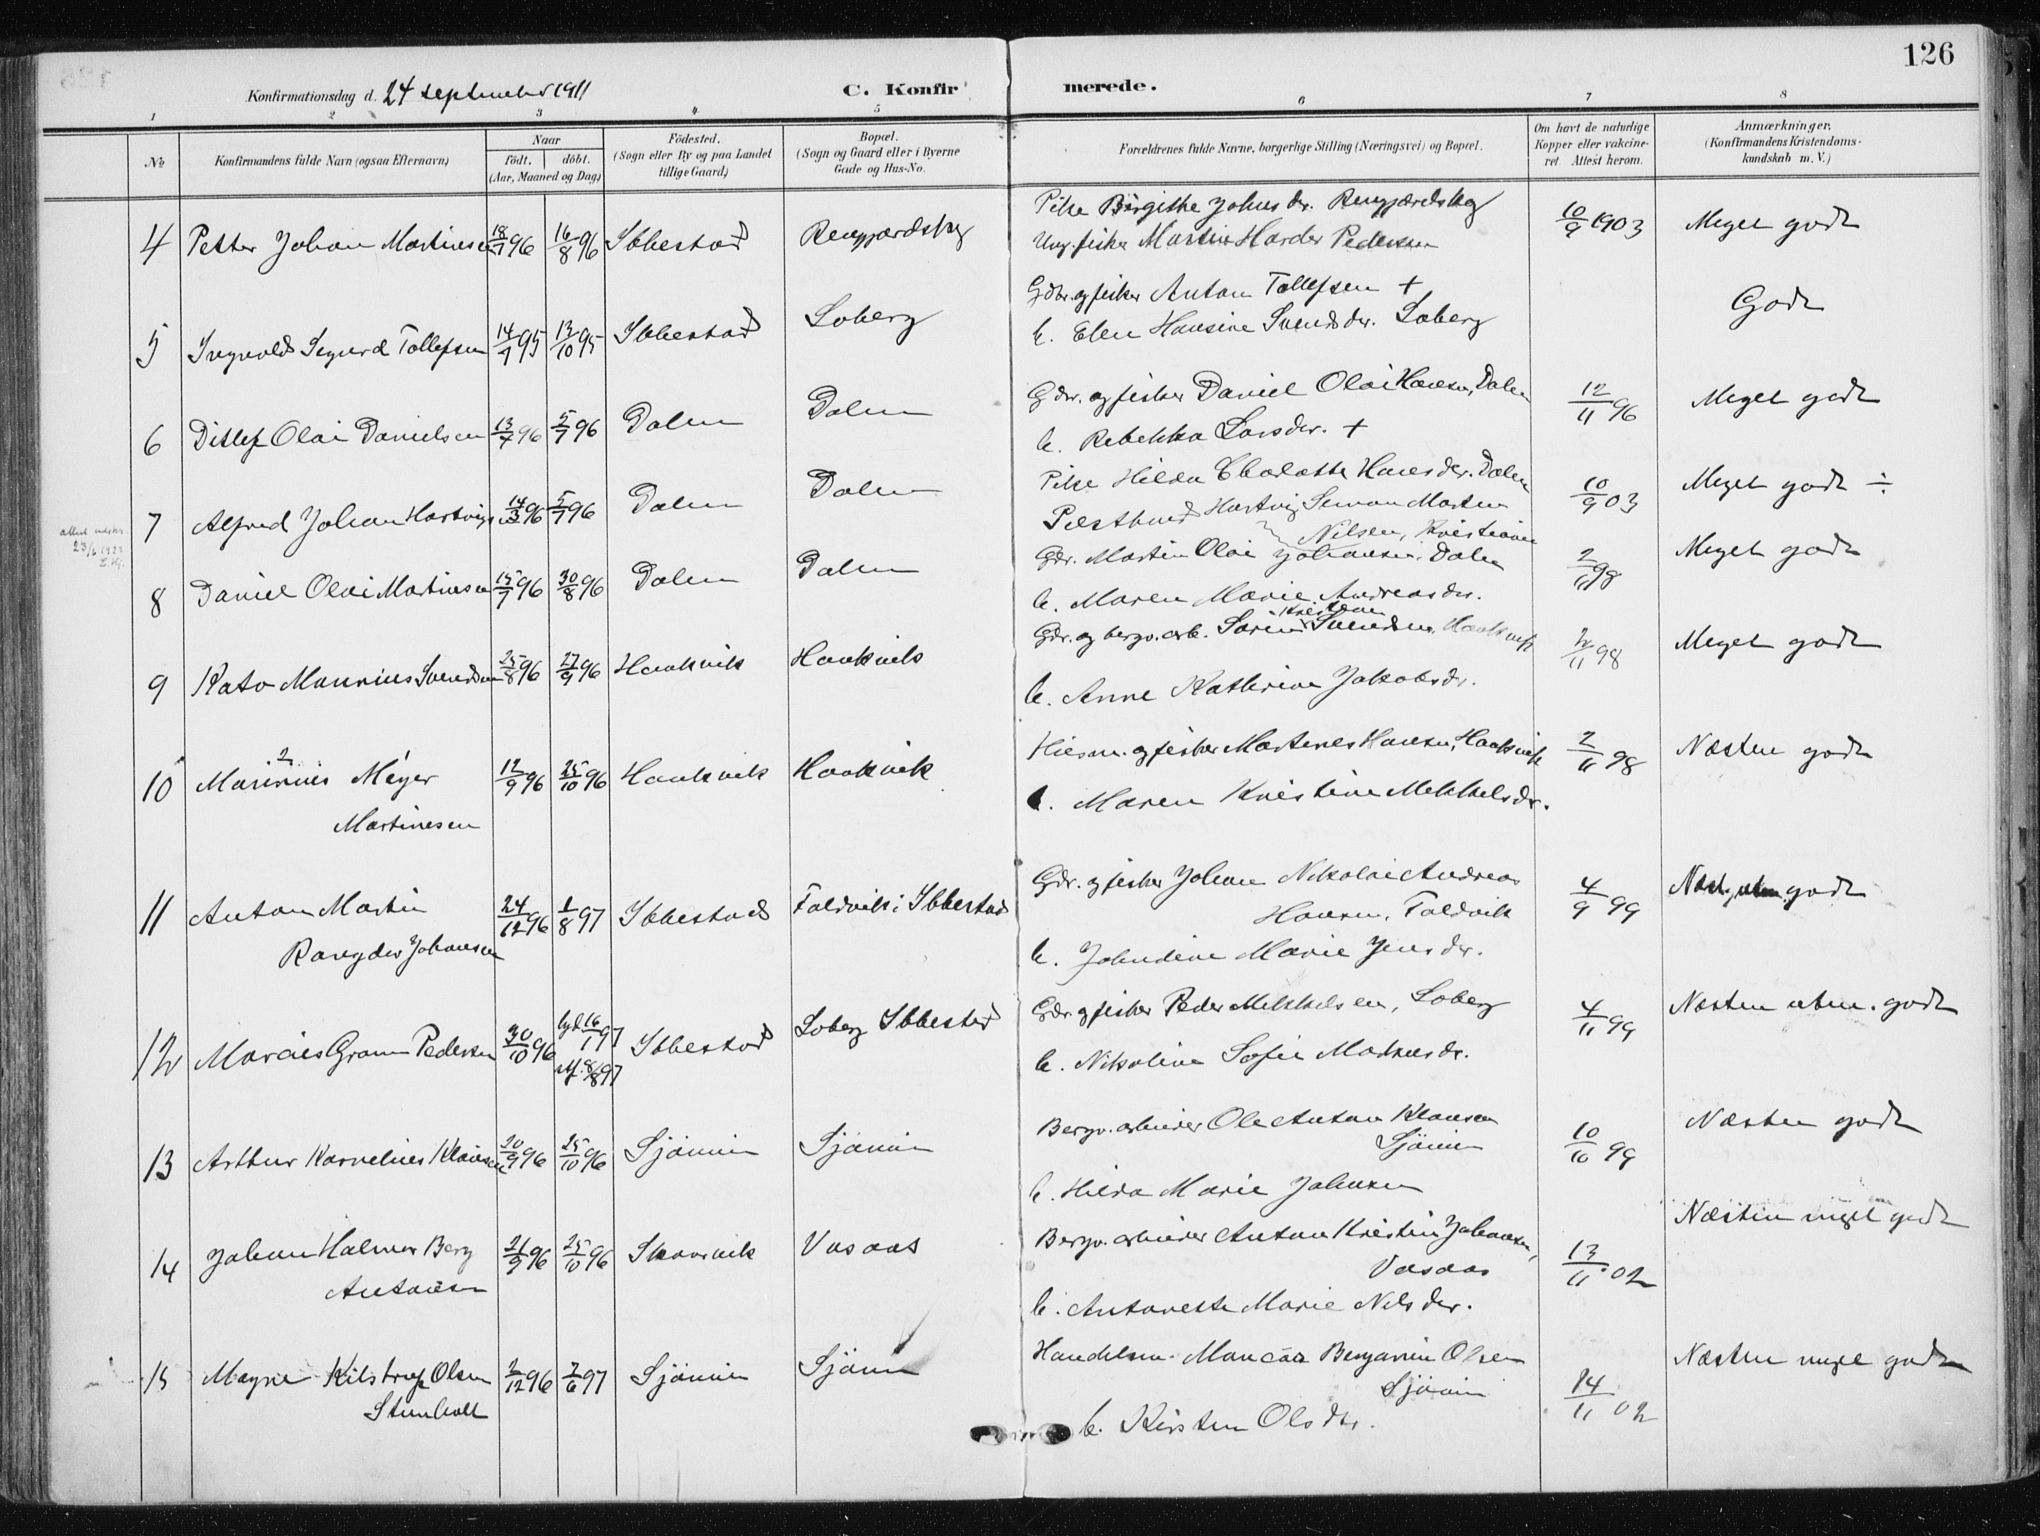 126
Konfirmationsdag d. 24 september 1911
C. Konfirmerede.
1 2 3 4 5 6 7 8
№
Konfirmandens fulde Navn (ogsaa Efternavn)
Naar
födt. döbt.
(Aar, Maaned og Dag)
Födested.
(Sogn eller By og paa Landet
tillige Gaard)
Bopæl.
(Sogn og Gaard eller i Byerne
Gade og Hus-No.
Forældrenes fulde Navne, borgerlige Stilling (Næringsvei) og Bopæl.
Om havt de naturlige
Kopper eller vakcine-
ret. Attest herom.
Anmærkninger.
(Konfirmandens Kristendoms-
kundskab m. V.)
Pike Birgithe Johns dr.
4 Petter Johan Martinsen 18/7 96 16/8 96 Ibbestad 10/9 1903 Meget godt
Ung. fisker Martin Harder Pedersen
Gdbr. og fisker Anton Tollefsen +
5 Ingvald Sigurd Tollefsen 14/7 95 13/10 95 Ibbestad Soberg Godt
h. Elen Hansine Svendsdr. Soberg
Gdr. og fisker Daniel Olai Hansen, Dalen
6 Ditlef Olai Danielsen 13/4 96 5/7 96 Dalen Dalen 12/11 96 Meget godt
h. Rebekka Larsdr. +
Pike Hilda Charlotte Hansdr. Dalen
7 Alfred Johan Hartvigs 14/3 96 5/7 96 Dalen Dalen 10/9 03 Meget godt ÷
Hartvig Simon Morten
Nilsen, Kristiania
23/6 1923
Gdr. Martin Olai Johansen, Dalen
8 Daniel Olai Martinsen 15/7 96 30/8 96 Dalen Dalen 2/11 98 Meget godt
h. Maren Marie Andreasdr.
Kristian
Gdr. og bergv. arb. Sörin Svendsen, Haakvik
9 Kato Maurius Svendsen 25/8 96 27/9 96 Haakvik Haakvik 2/11 98 Meget godt
h. Anne Kathrine Jakobsdr.
Husm. og fisker Martines Hansen, Haakvik
10 Meyer 12/9 96 25/10 96 Haakvik Haakvik 2/11 98 Næsten godt
Martinesen
h. Maren Kristine Mekkelsdr.
Gdr. og fisker Johan Nikolai Andreas
11 Anton Martin 24/12 96 1/8 97 Ibbestad Foldvik i Ibbestad 4/9 99 Næst. utm. godt
Hansen, Foldvik
Johansen
h. Johndine Marie Jensdr.
Gdr og fisker Peder Mekkelsen, Soberg
12 Gram Pedersen 30/10 96 16/1 97 8/8 97 Ibbestad Soberg Ibbestad 4/11 99 Næsten utm. godt
h. Nikoline Sofie Markusdr.
Bergv. arbeider Ole Anton Klausen
Sjömin
13 Arthur Kornelius Klausen 20/9 96 25/10 96 Sjömin Sjömin 10/10 99 Næsten godt
h. Hilda Marie Johnsen
Bergv. arbeider Anton Kristin Johansen,
Vasaas
14 Johan Halmar Berg 21/9 96 25/10 96 Skaarvik Vasaas 13/11 02 Næsten meget godt
Antonsen
h. Antonette Marie Nilsdr.
Handelsm. Benjamin Olsen
Sjömin
15 Magne Kilstrup Olsen 2/12 96 7/6 97 Sjömin Sjömin 14/11 02 Næsten meget godt
Stenholt
h. Kirsten Olsdr.